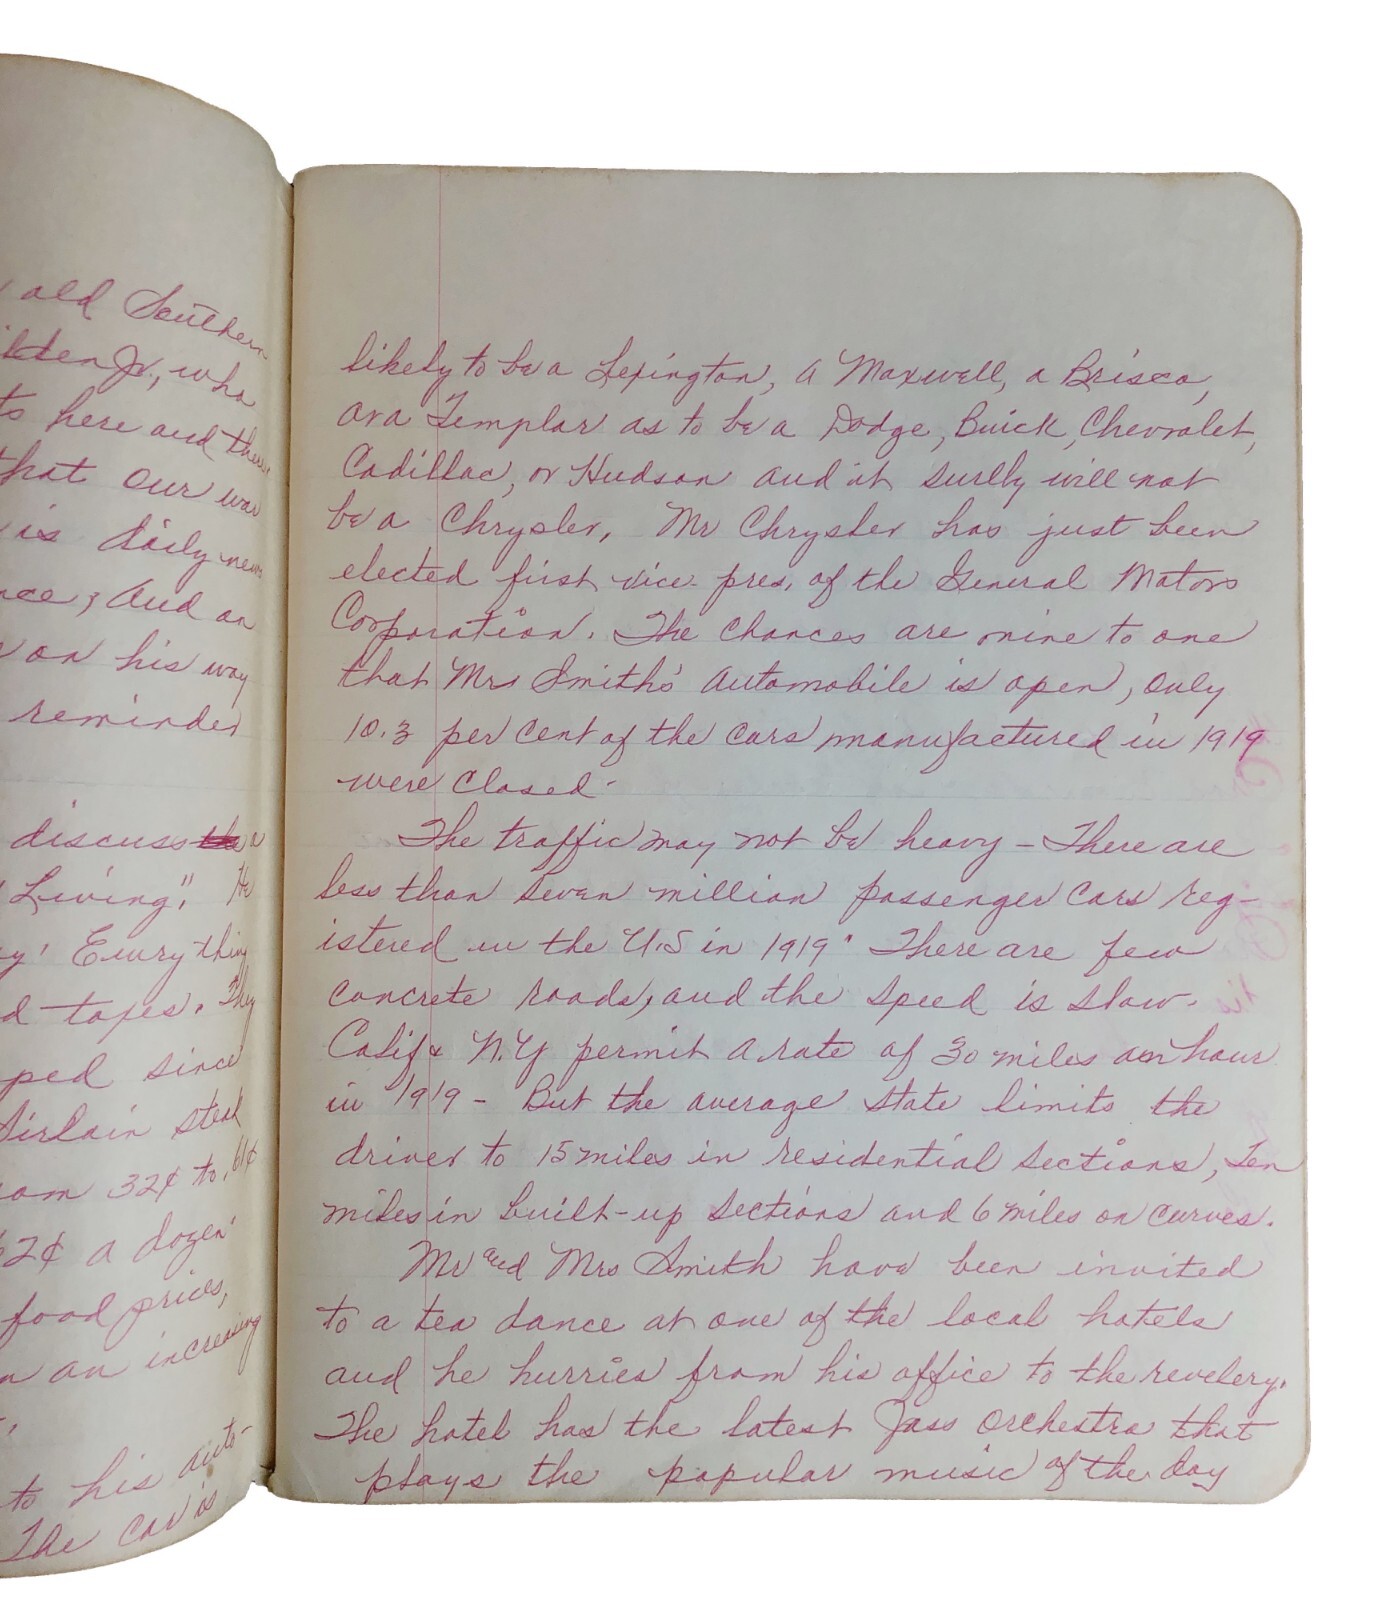 old Southern
Jr., who
to here and there
that our war
is daily news
and an
on his way
reminder
discuss the a
Living". He
Everything
tapes. They
since
Sirloin steak
32¢ to 61¢
62¢ a dozen
food prices,
an increasing
to his auto-
The car is
likely to be a Lexington, a Maxwell, a Brisco,
or a Templar as to be a Dodge, Buick, Chevrolet,
Cadillac, or Hudson and it surlly will not
be a Chrysler, Mr Chrysler has just been
elected first vice pres, of the General Motors
Corporation. The chances are nine to one
that Mrs Smith's automobile is open, only
10.3 per cent of the cars manufactured in 1919
were closed-
The traffic may not be heavy - There are
less than seven million passenger cars reg-
istered in the U.S in 1919. There are few
concrete roads, and the speed is slow.
Calif & N.Y permit a rate of 30 miles an hour
in 1919 - But the average state limits the
driver to 15 miles in residential sections, Ten
miles in built-up sections and 6 miles on curves.
Mr and Mrs Smith have been invited
to a tea dance at one of the local hotels
and he hurries from his office to the revelery.
The hotel has the latest Jass Orchestra that
plays the popular music of the day